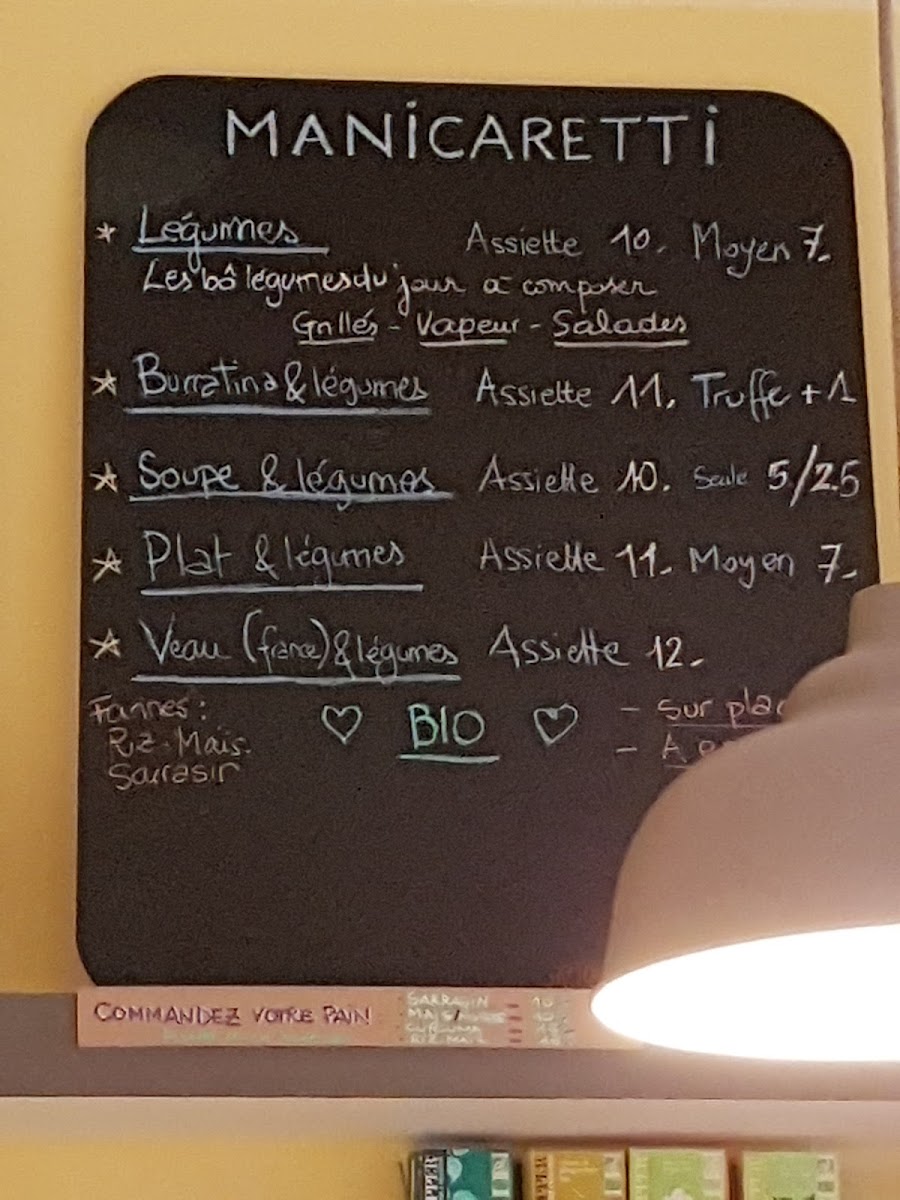 MANiCARETTi
Légumes Assiette 10. Moyen 7.
Les bô légumes du jour à composer
Grillés - Vapeur - Salades
Burratina & légumes Assiette 11. Truffe + 1
Soupe & légumes Assiette 10. Seule 5/2.5
Plat & légumes Assiette 11. Moyen 7.
Veau (france) & légumes Assiette 12.
Farines: BIO - Sur plac
Riz. Maïs. - A
Sarrasin
COMMANDEZ VOTRE PAIN SARRASIN - 10